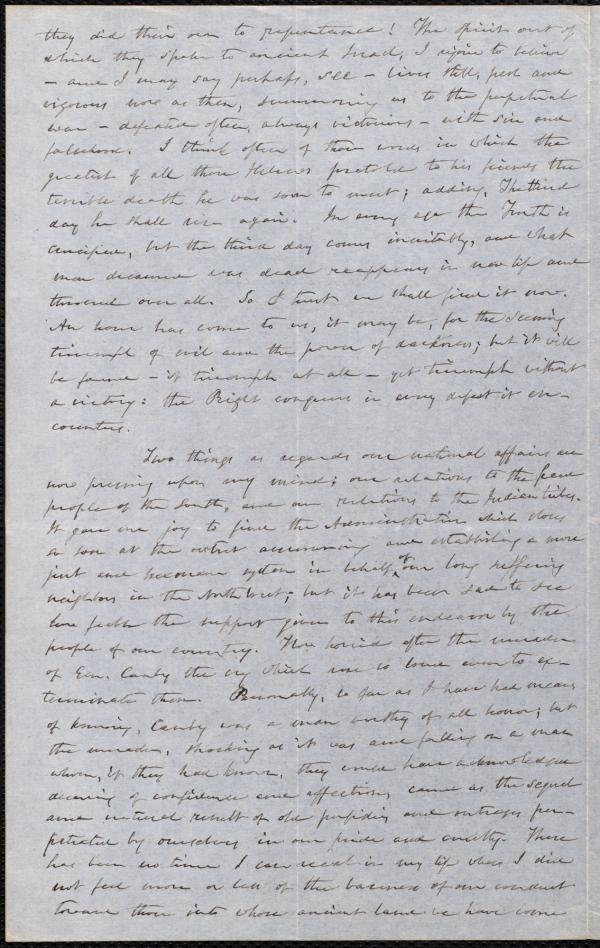 they did their own to repentance! The spirit out of
which they spoke to ancient Israel, I rejoice to believe
– and I may say perhaps, see – lives still, fresh and
vigorous now as then, summoning us to the perpetual
war – defeated often, always victorious – with sin and
falsehood. I think often of those words in which the
greatest of all those Hebrews foretold to his friends the
terrible death he was soon to meet; adding, The third
day he shall rise again. In every age the Truth is
crucified, but the third day comes inevitably, and what
men dreamed was dead reappears in new life and
throned over all. So I trust we shall find it now.
An hour has come to us, it may be, for the seeming
triumph of evil and the power of darkness; but it will
be found – if triumph at all – yet triumph without
a victory: the Right conquers in every defeat it en-
counters.
Two things as regards our national affairs are
now pressing upon my mind; our relations to the freed
people of the South, and our relations to the Indian tribes.
It gave me joy to find the Administration which does
so soon at the outset announcing and establishing a more
just and humane system in behalf of our long suffering
neighbors in the Northwest; but it has been sad to see
how feeble the support given to this endeavor by the
people of our country. How horrid after the murder
of Gen. Canby the cry which rose so loud even to ex-
terminate them. Personally, so far as I have had means
of knowing, Canby was a man worthy of all honor; but
the murder, shocking as it was and falling on a man
whom, if they had known, they would have acknowledged
deserving of confidence and affection, came as the sequel
and natural result of old perfidies and outrages per-
petrated by ourselves in our pride and cruelty. There
has been no time I can recal in my life when I did
not feel more or less of the baseness of our conduct
toward those into whose ancient land we have come